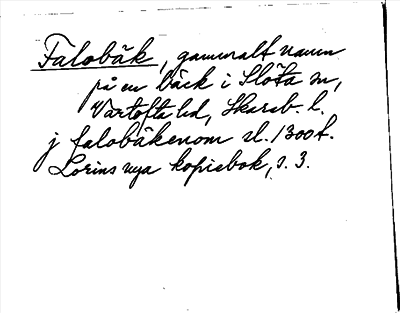 Falobäk, gammalt namn
på en bäck i Slöta sn,
Vartofta hd, Skarab. l.
j falobäkenom sl. 1300t.
Lorins nya kopiebok, s. 3.